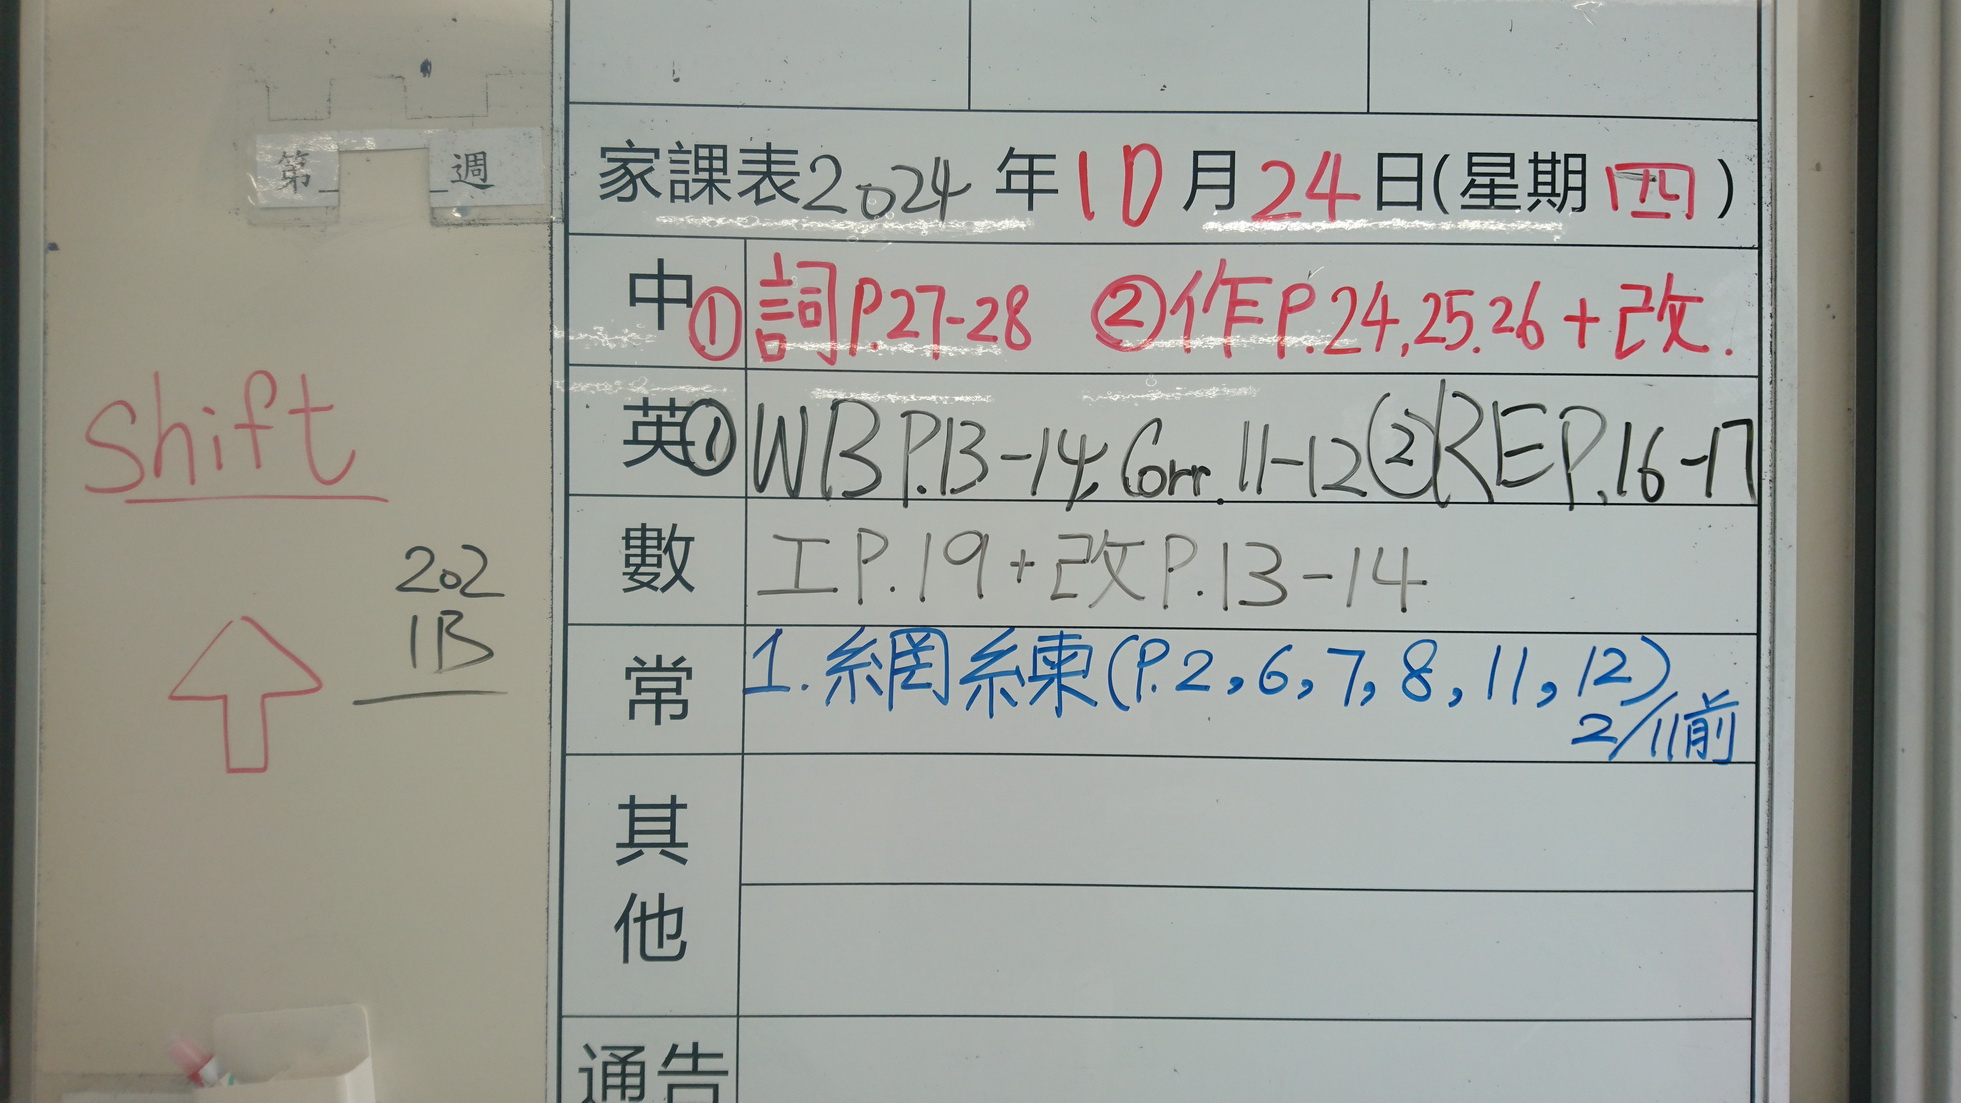 第_ _週
家課表2024年10月24日(星期四)
中 ①詞P.27-28 ②作P.24,25.26+改.
英 ①WB P.13-14, Corr. 11-12 ②RE P.16-17
數 工P.19+改P.13-14
常 1. 網練(P.2,6,7,8,11,12)
2/11前
其他
通告
Shift
202
1B